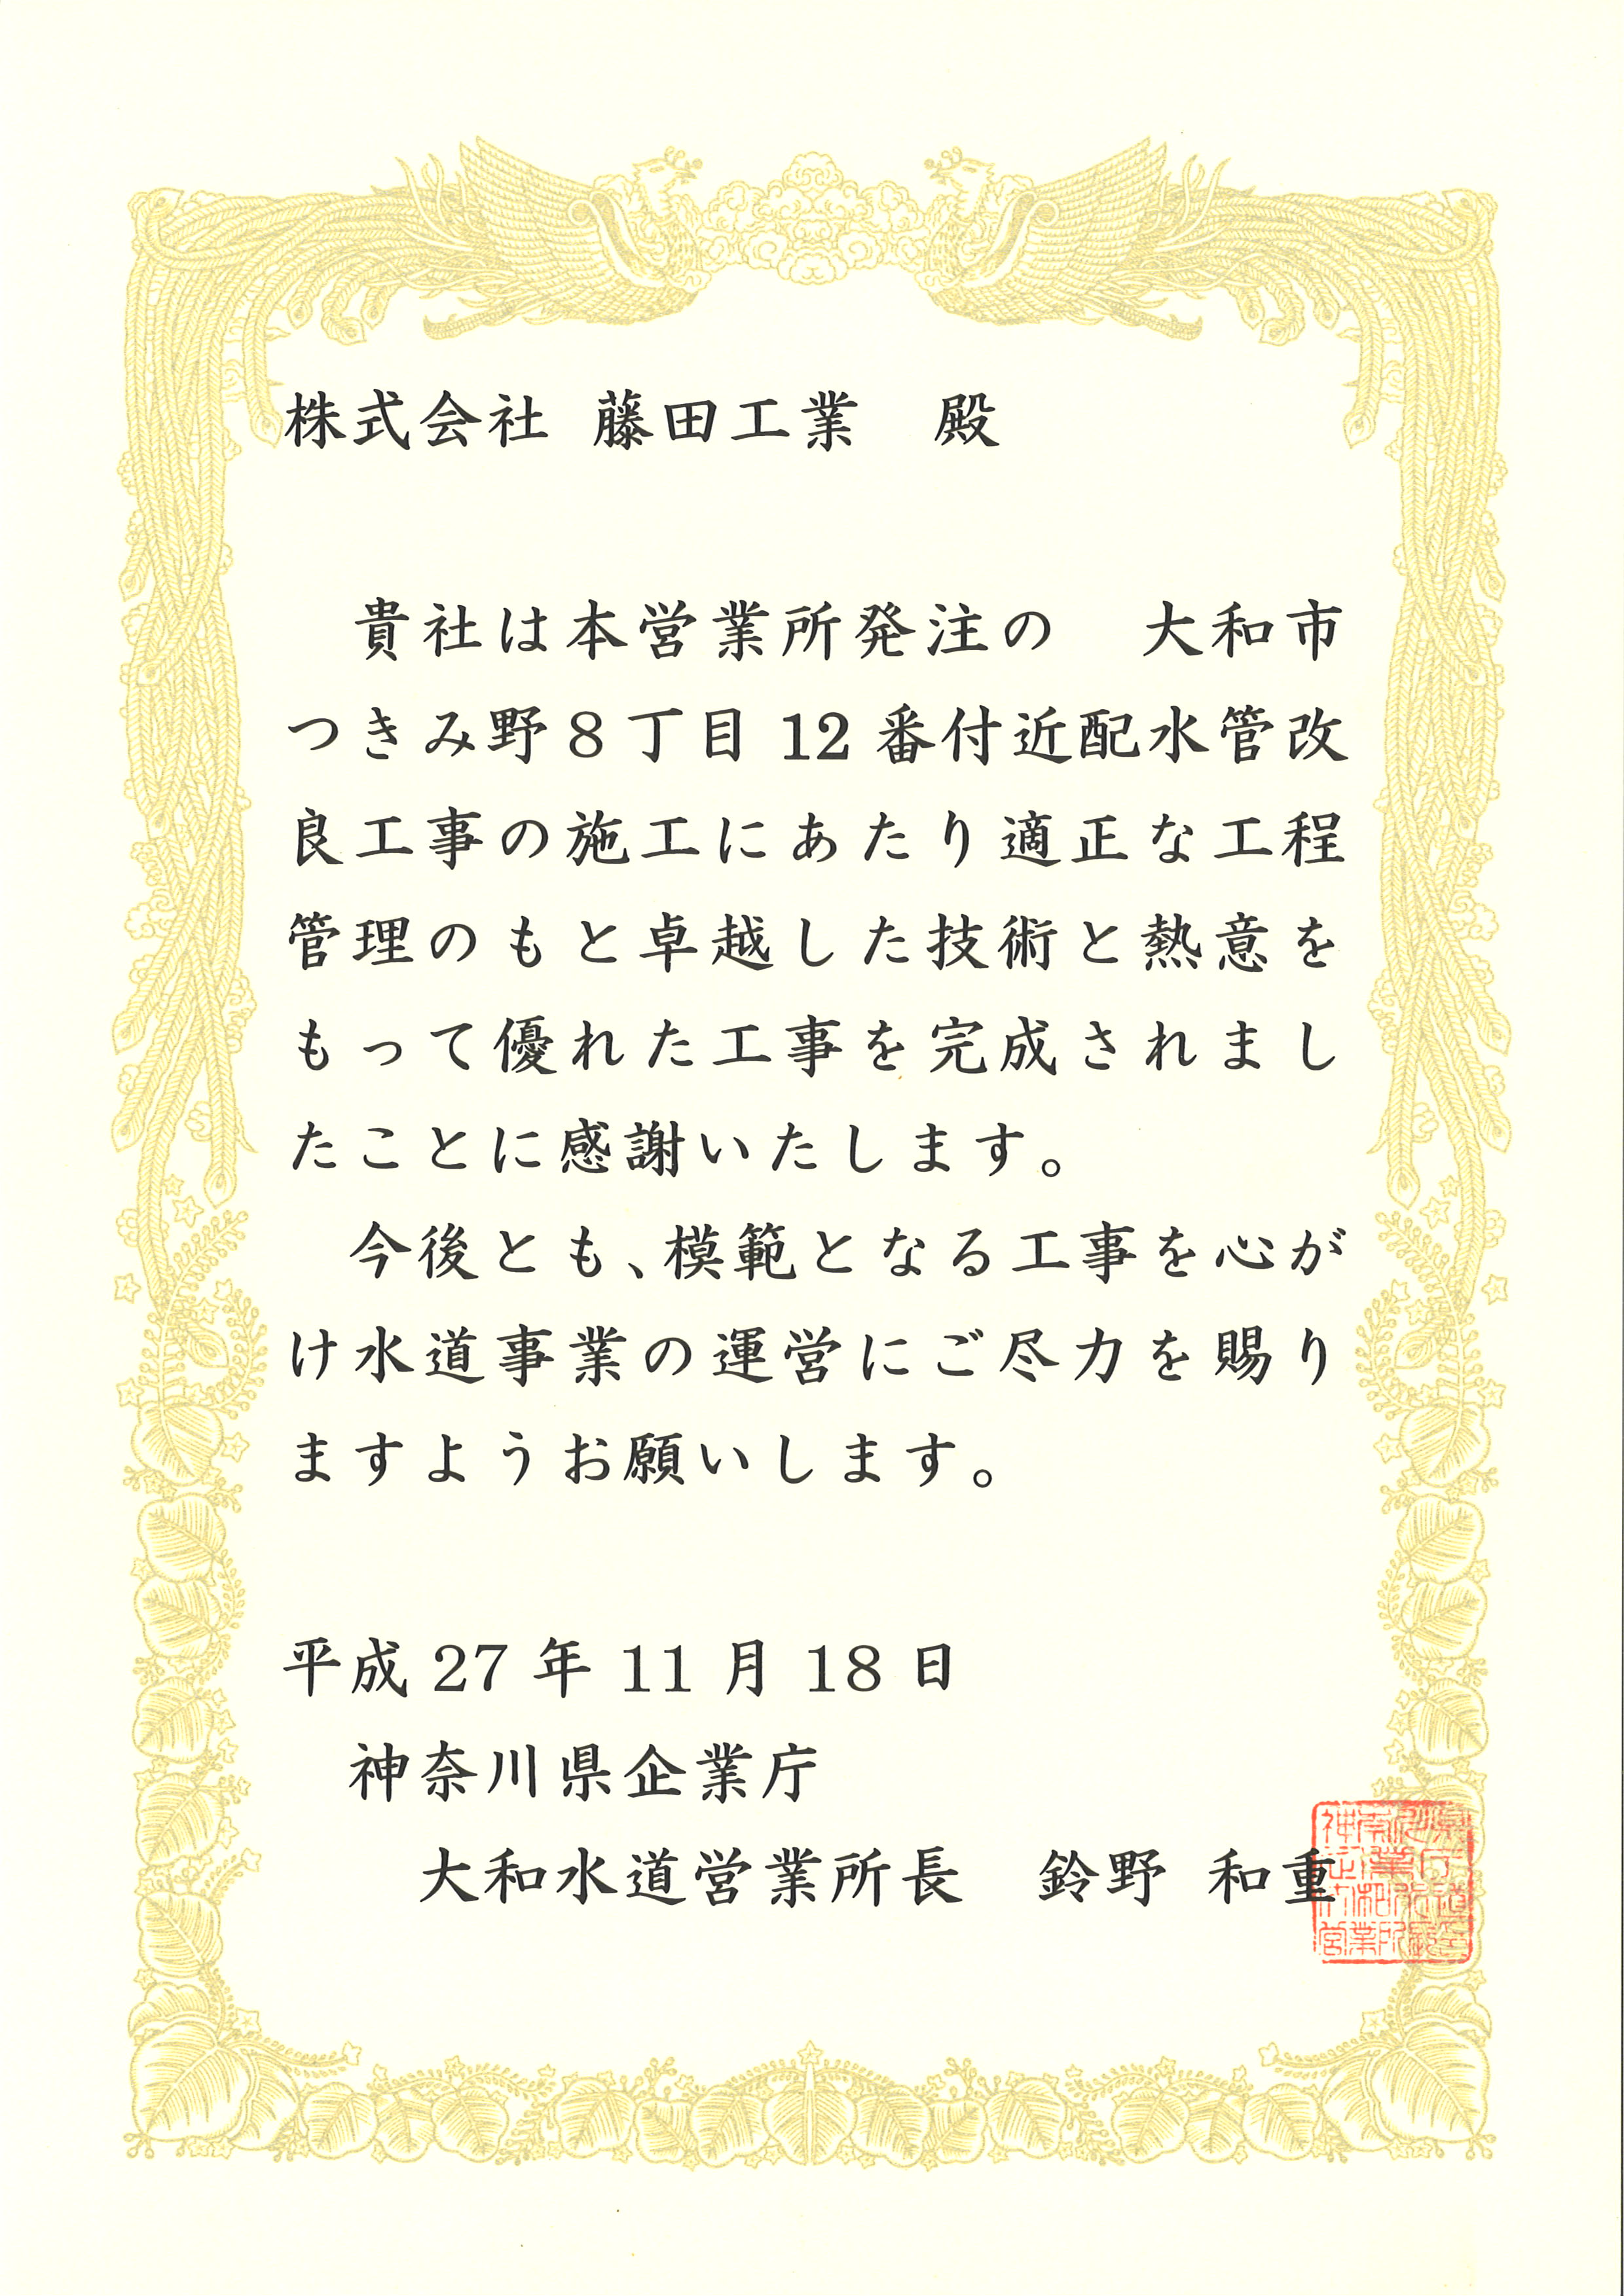 株式会社 藤田工業　殿
貴社は本営業所発注の　大和市
つきみ野8丁目12番付近配水管改
良工事の施工にあたり適正な工程
管理のもと卓越した技術と熱意を
もって優れた工事を完成されまし
たことに感謝いたします。
今後とも、模範となる工事を心が
け水道事業の運営にご尽力を賜り
ますようお願いします。
平成27年11月18日
神奈川県企業庁
大和水道営業所長　鈴野 和重